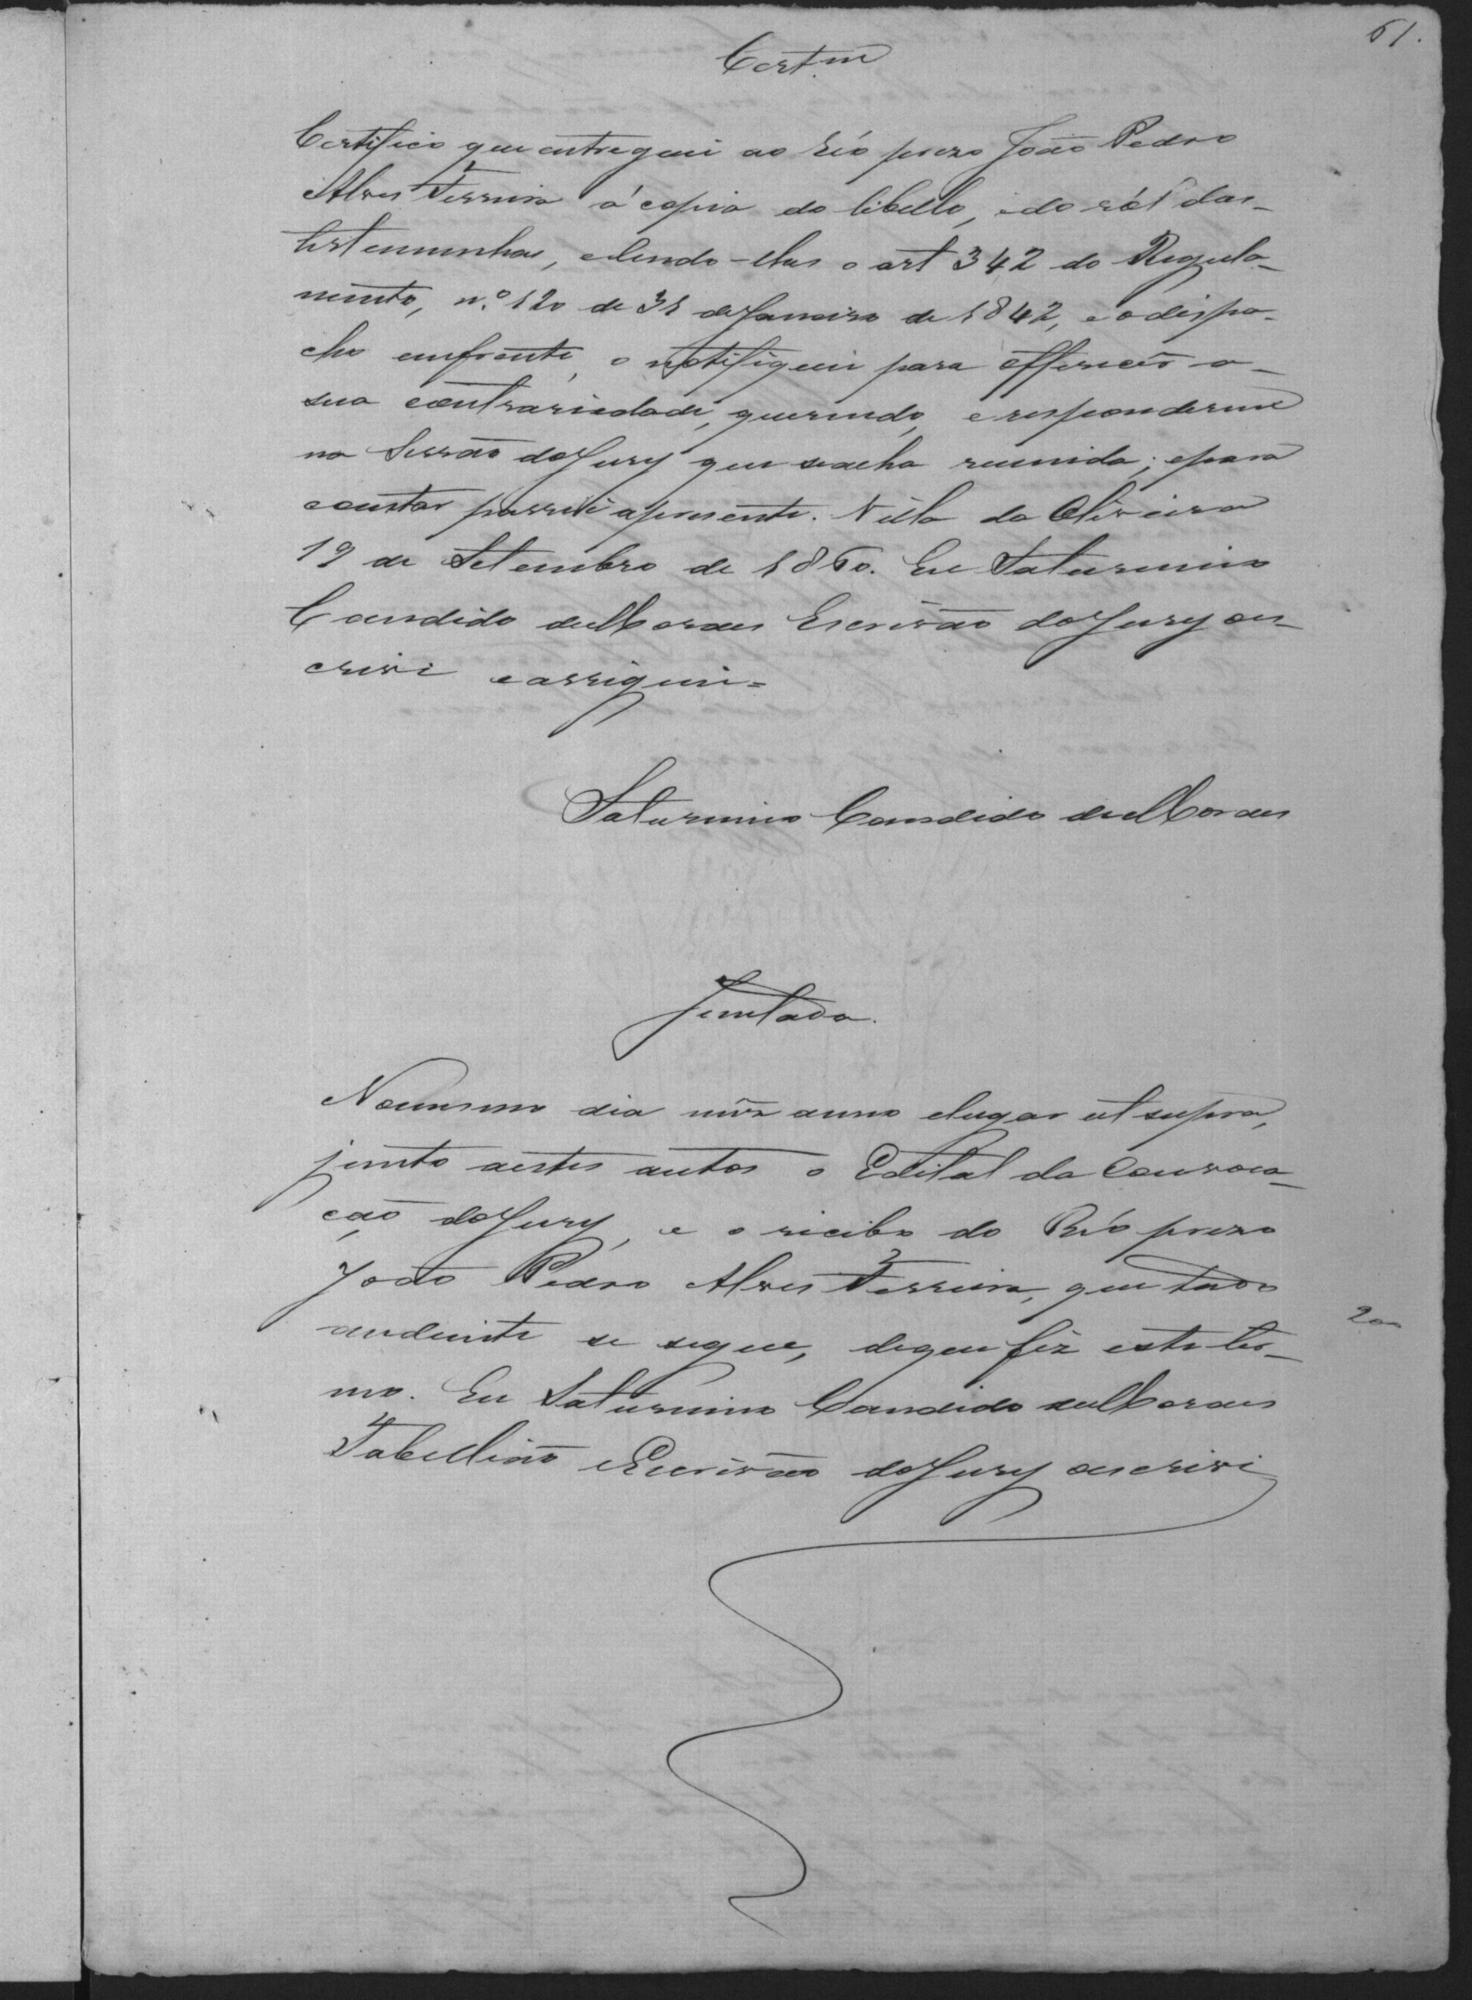 61.
Cert.m
Certifico que entreguei ao Réo prezo João Pedro
Alves Ferreira a copia do libello, e do ról das-
testemunhas, e lendo-lhes o art 342 do Regula-
mento, n.º 120 de 31 de Janeiro de 1842, e o despa-
cho emfrente, o notifiquei para offerecer a-
sua contrariedade, querendo, e responder me
na Sessão do Jury que se acha reunida; e para
constar passei a presente. Villa da Oliveira
19 de Setembro de 1860. Eu Saturnino
Candido de Moraes Escrivão do Jury o es-
crivi e assignei=
Saturnino Candido de Moraes
Juntada.
No mesmo dia mêz anno e lugar ut supra,
junto a estes autos o Edital da Convoca-
ção do Jury, e o recibo do Réo prezo
João Pedro Alves Ferreira, que tudo
audiente se segue, de que fiz este ter-
mo. Eu Saturnino Candido de Moraes
Tabellião e Escrivão do Jury o escrivi
200